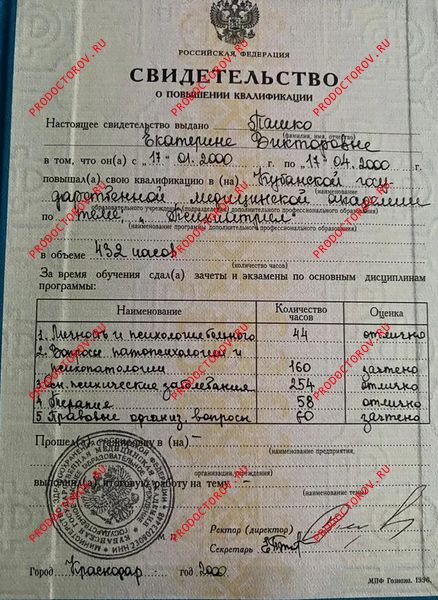 РОССИЙСКАЯ ФЕДЕРАЦИЯ
СВИДЕТЕЛЬСТВО
О ПОВЫШЕНИИ КВАЛИФИКАЦИИ
Настоящее свидетельство выдано Пашко
(фамилия, имя, отчество)
Екатерине Викторовне
в том, что он(а) с „17" 01. 2000 г. по „17" 04. 2000 г.
повышал(а) свою квалификацию в (на) Кубанской госу
(наименование
дарственной медицинской академии
образовательного учреждения (подразделения) дополнительного профессионального образования)
по теме, „Психиатрия"
(наименование программы дополнительного профессионального образования)
в объеме 432 часов
(количество часов)
За время обучения сдал(а) зачеты и экзамены по основным дисциплинам
программы:
Наименование Количество часов Оценка
1. Личность и психология больного 44 отлично
2. Вопросы патопсихологии и
психопатологии 160 зачтено
3. психические заболевания 254 отлично
4. Терапия 58 отлично
5. Правовые организ. вопросы 60 зачтено
Прошел(а) стажировку в (на) –
(наименование предприятия,
организации, учреждения)
выполнил(а) итоговую работу на тему –
(наименование темы)
Ректор (директор)
Секретарь
Город Краснодар год 2000
МПФ Гознака. 1996.
PRODOCTOROV.RU